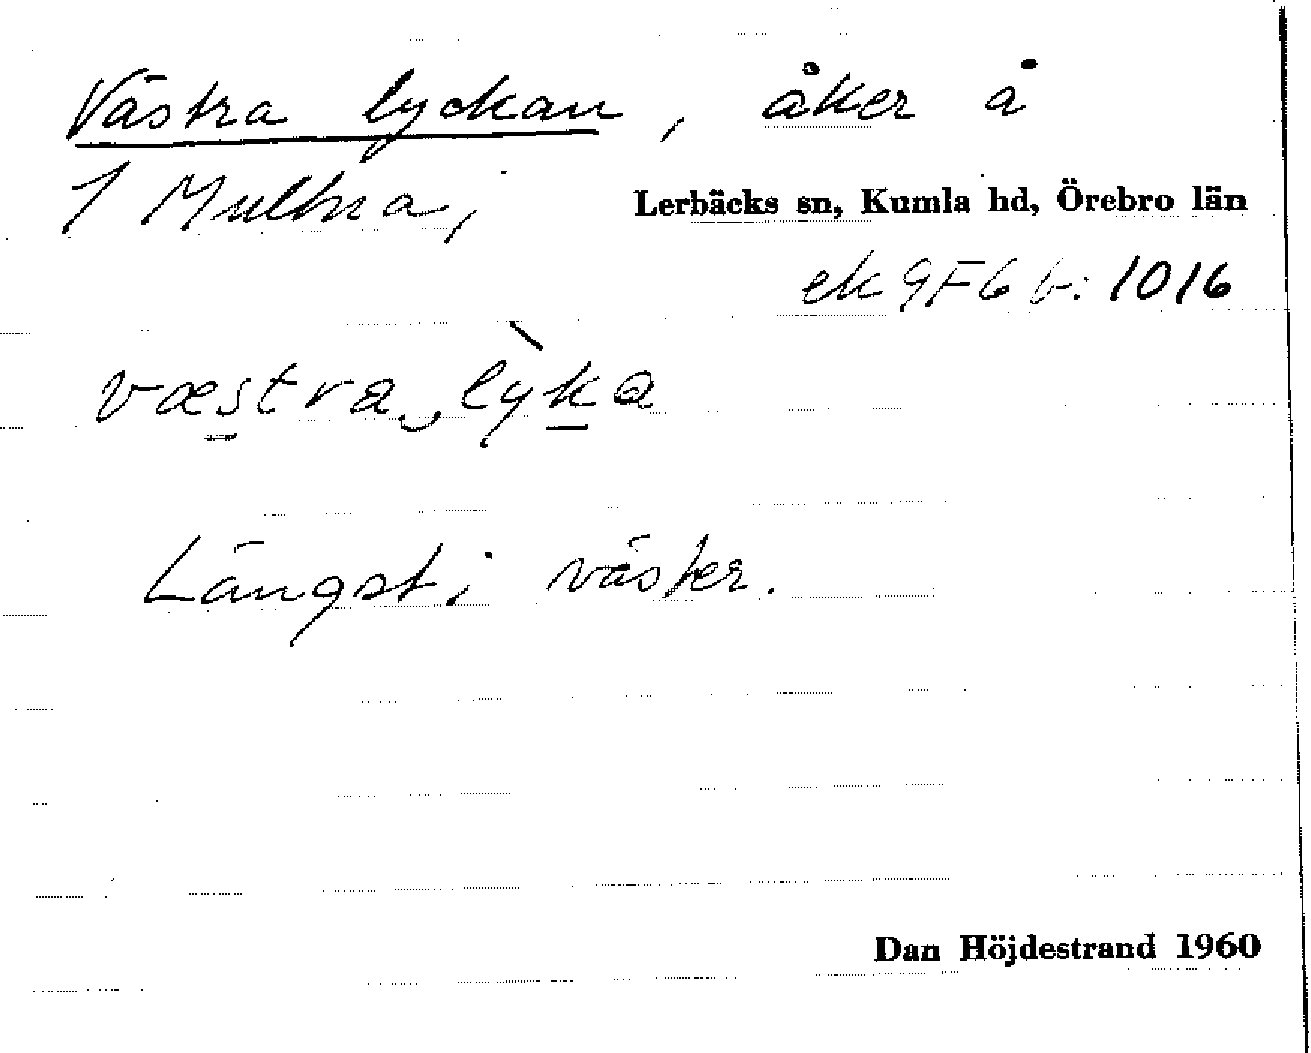 Västra lyckan, åker å
1 Multna,
Lerbäcks sn, Kumla hd, Örebro län
ek 9F6 b: 1016
væstra lỳka
Längst i väster.
Dan Höjdestrand 1960